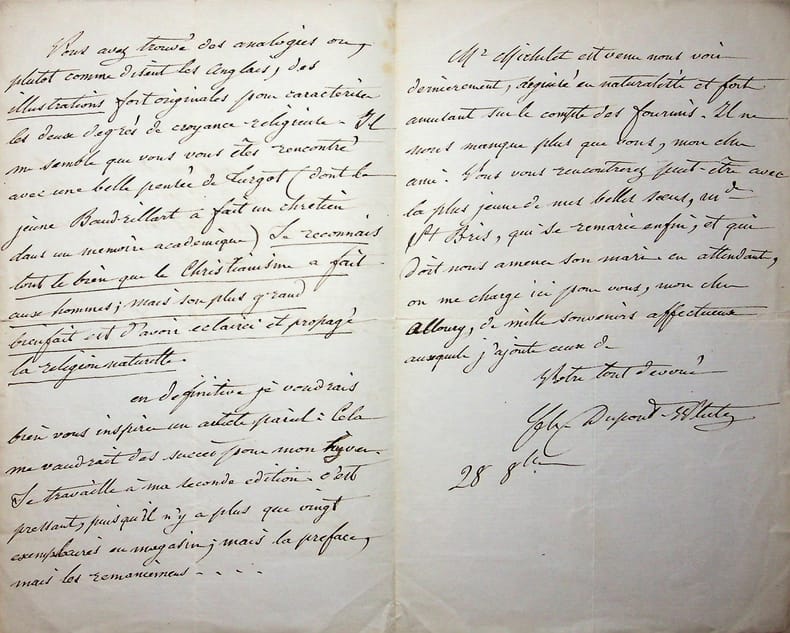 Vous avez trouvé des analogies ou,
plutot comme disent les anglais, des
illustrations fort originales pour caracteriser
les deux degrés de croyance religieuse. Il
me semble que vous vous êtes rencontré
avec une belle pensée de Turgot (dont le
jeune Baudrillart a fait un chretien
dans un memoire academique) Je reconnais
tout le bien que le Christianisme a fait
aux hommes; mais son plus grand
bienfait est d'avoir eclairci et propagé
la religion naturelle.
en definitive je voudrais
bien vous inspirer un article pareil: Cela
me vaudrait des succès pour mon hyver.
Je travaille à ma seconde edition. c'est
pressant, puisqu'il n'y a plus que vingt
exemplaires en magasin; mais la preface,
mais les remaniemens - - . .
Mr Michelet est venu nous voir
dernierement, deguisé en naturaliste et fort
amusant sur le compte des fourmis. Il ne
nous manque plus que vous, mon cher
ami. Vous vous rencontrerez peut-être avec
la plus jeune de mes belles soeurs, md
St Bris, qui se remarie enfin, et qui
doit nous amener son mari. en attendant,
on me charge ici pour vous, mon cher
Alloury, de mille souvenirs affectueux
auxquels j'ajoute ceux de
Votre tout devoué
Dupont-White
28 8bre